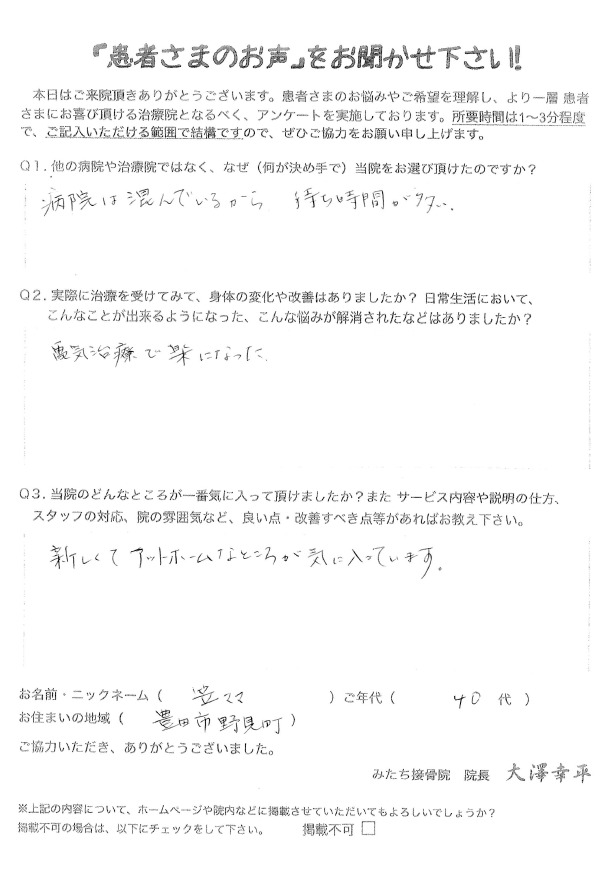 「患者さまのお声」をお聞かせ下さい!
本日はご来院頂きありがとうございます。患者さまのお悩みやご希望を理解し、より一層 患者
さまにお喜び頂ける治療院となるべく、アンケートを実施しております。所要時間は1〜3分程度
で、ご記入いただける範囲で結構ですので、ぜひご協力をお願い申し上げます。
Q1. 他の病院や治療院ではなく、なぜ（何が決め手で）当院をお選び頂けたのですか？
病院は混んでいるから 待ち時間が多い.
Q2. 実際に治療を受けてみて、身体の変化や改善はありましたか？ 日常生活において、
こんなことが出来るようになった、こんな悩みが解消されたなどはありましたか？
電気治療で楽になった
Q3. 当院のどんなところが一番気に入って頂けましたか？また サービス内容や説明の仕方、
スタッフの対応、院の雰囲気など、良い点・改善すべき点等があればお教え下さい。
新しくて アットホームなところが 気に入っています。
お名前・ニックネーム（ ママ ）ご年代（ 40 代 ）
お住まいの地域（ 豊田市野見町 ）
ご協力いただき、ありがとうございました。
みたち接骨院 院長 大澤幸平
※上記の内容について、ホームページや院内などに掲載させていただいてもよろしいでしょうか？
掲載不可の場合は、以下にチェックをして下さい。 掲載不可 □